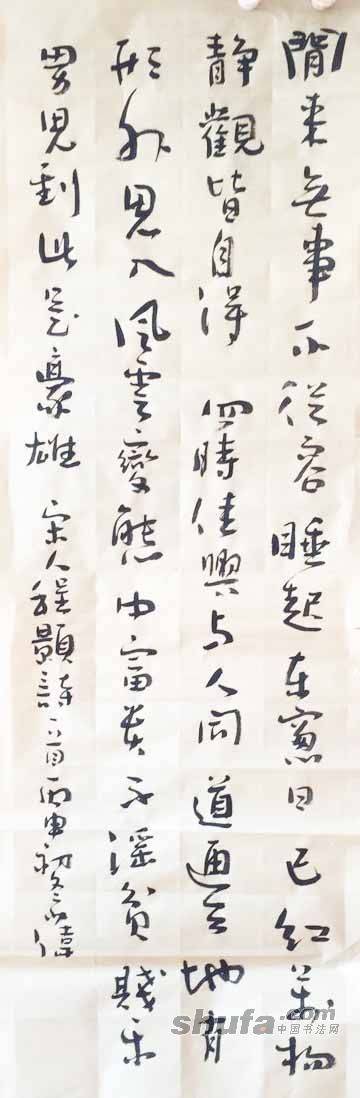 閒来無事不從容睡起東窻日已紅萬物
静觀皆自得四時佳興与人同道通天地有
形外思入風雲變態中富貴不淫貧賤樂
男児到此是豪雄 宋人程顥詩一首丙申初冬偉
shufa.com
中国书法网